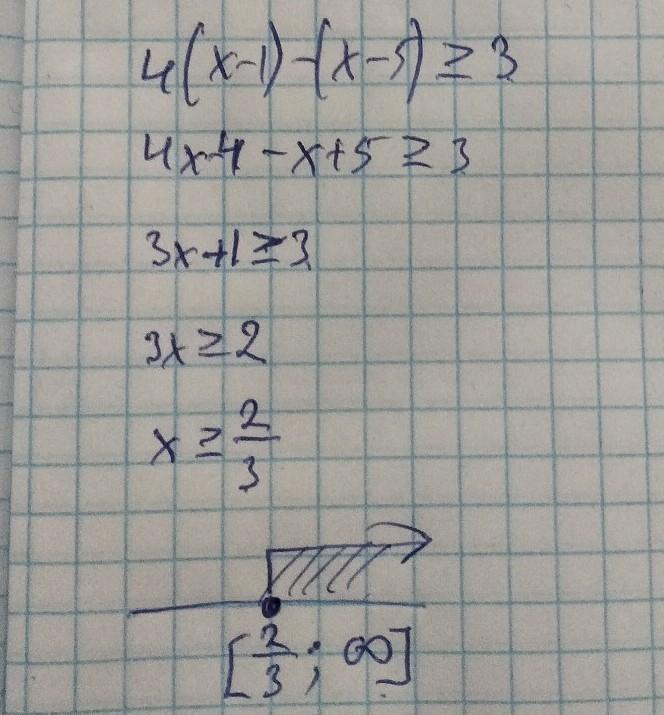 4(x-1)-(x-5) ≥ 3
4x-4-x+5 ≥ 3
3x+1 ≥ 3
3x ≥ 2
x ≥ 2/3
[2/3; ∞]